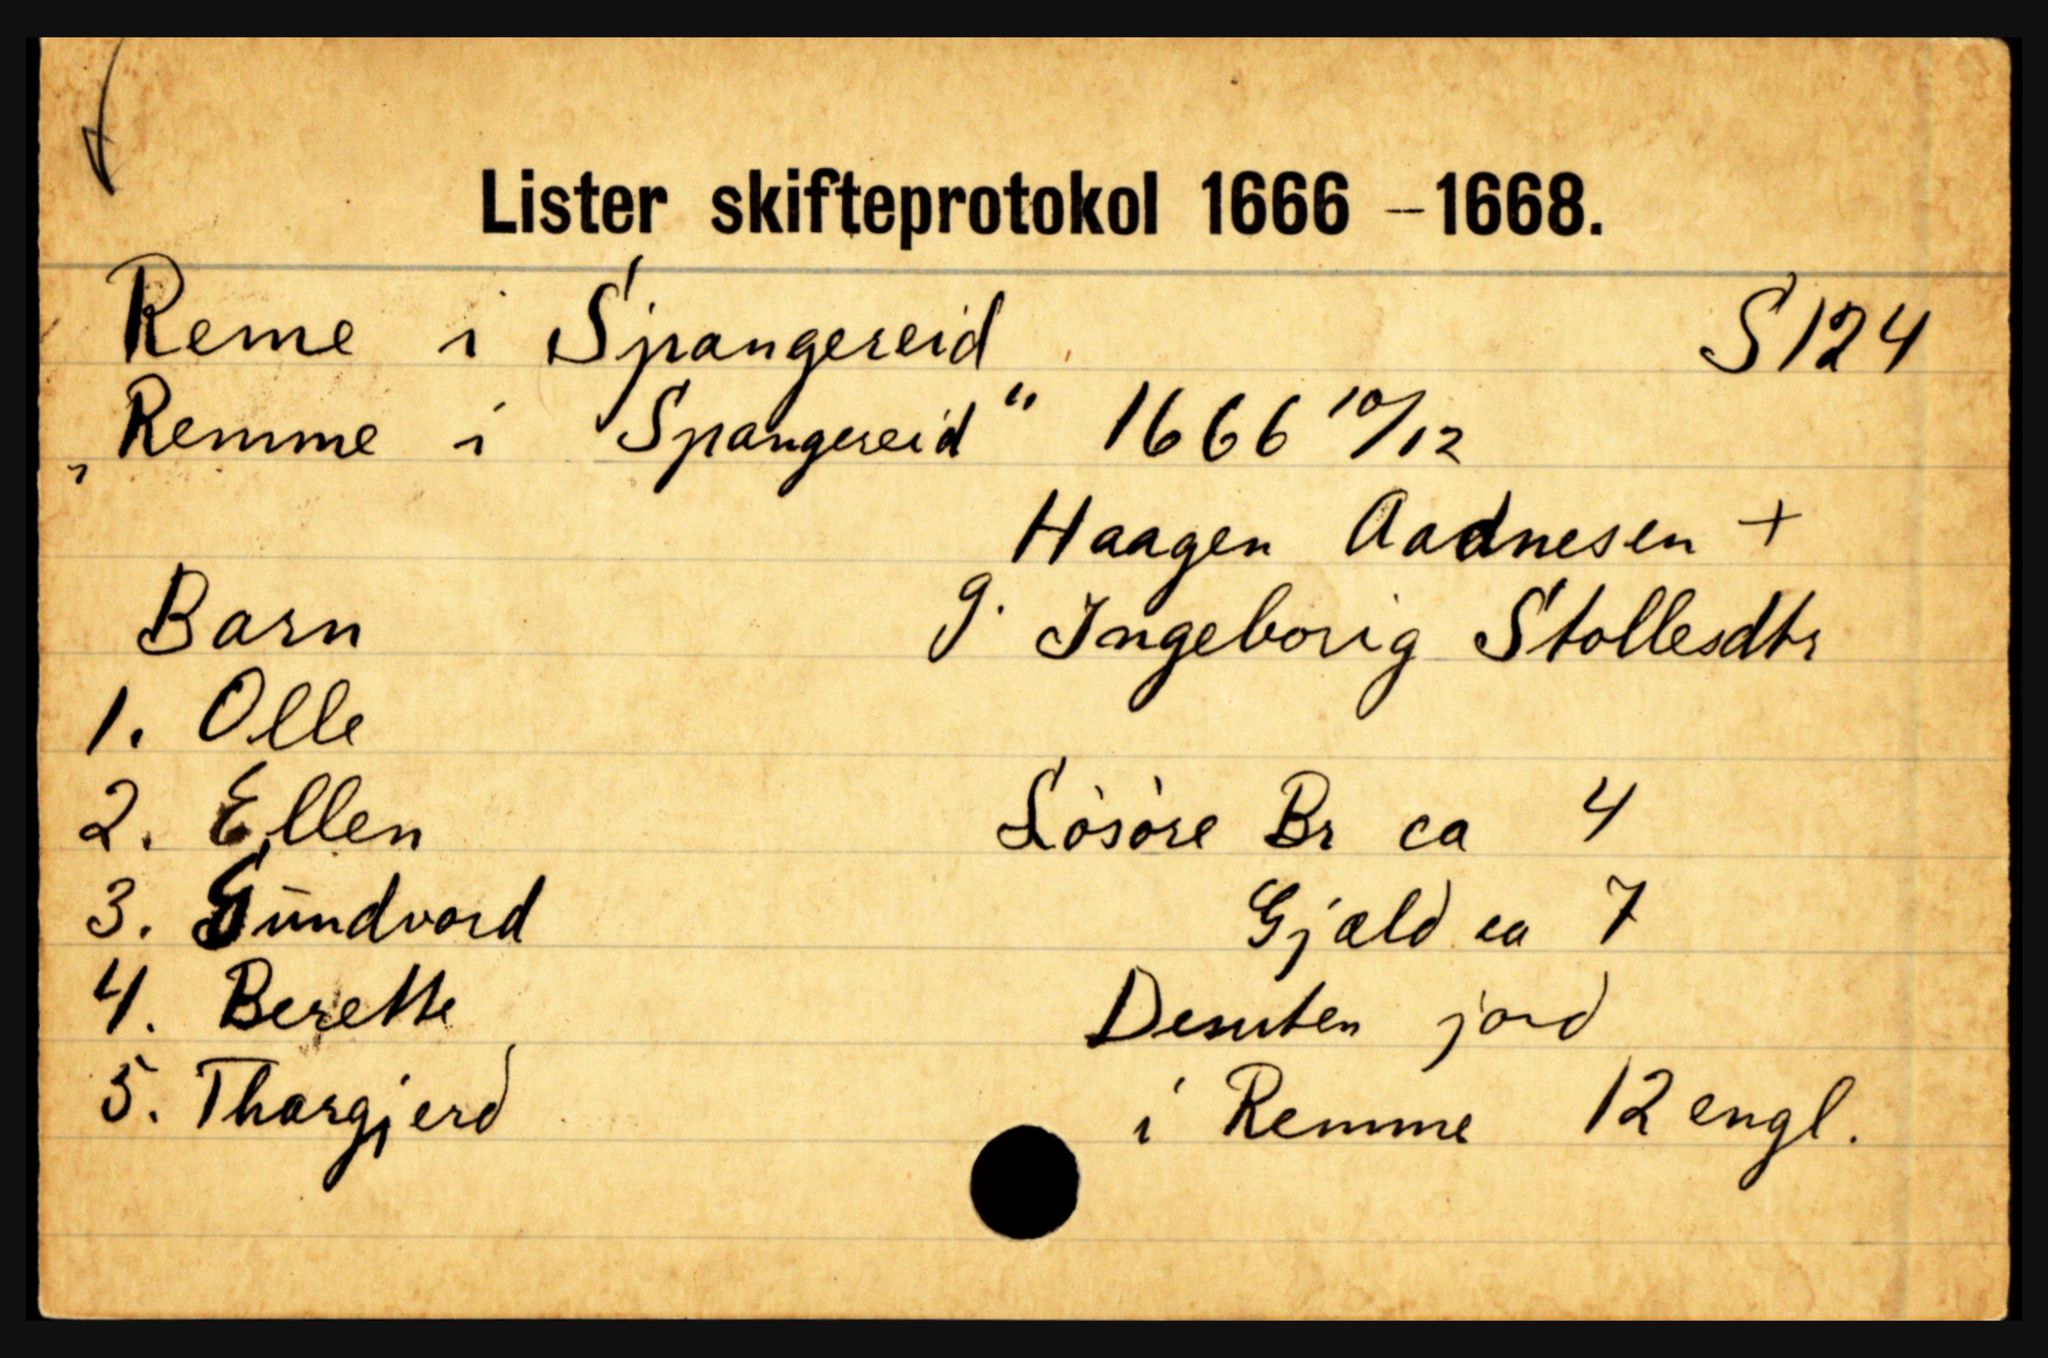 Lister skifteprotokol 1666 – 1668.
Reme i Spangereid S 124
„Remme i Spangereid“ 1666 10/12
Haagen Aadnesen +
Barn g. Ingeborig Stollesdtr
1. Olle
2. Ellen Lösöre Br ca 4
3. Gundvord Gjæld ca 7
4. Berette Desuten jord
5. Thorgjerd i Remme 12 engl.